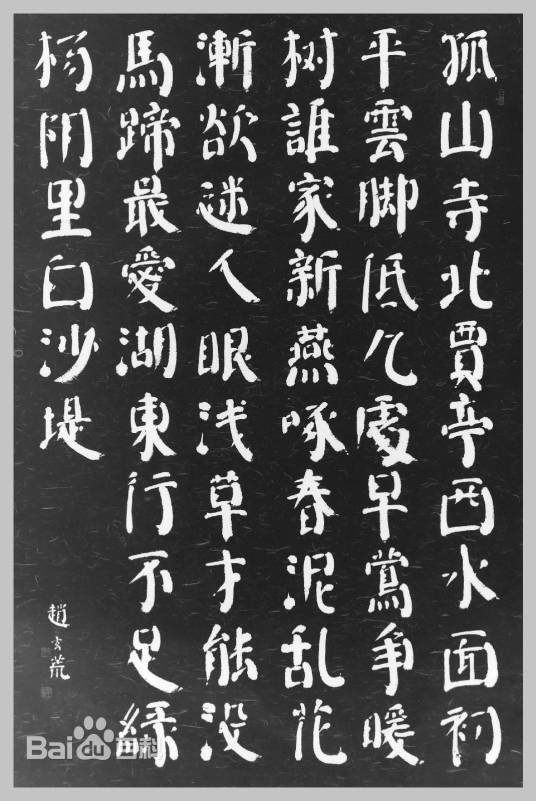 孤山寺北賈亭西水面初
平雲脚低几處早鶯争暖
树誰家新燕啄春泥乱花
漸欲迷人眼浅草才能没
馬蹄最愛湖東行不足綠
楊阴里白沙堤
趙玄荒
Baidu百科